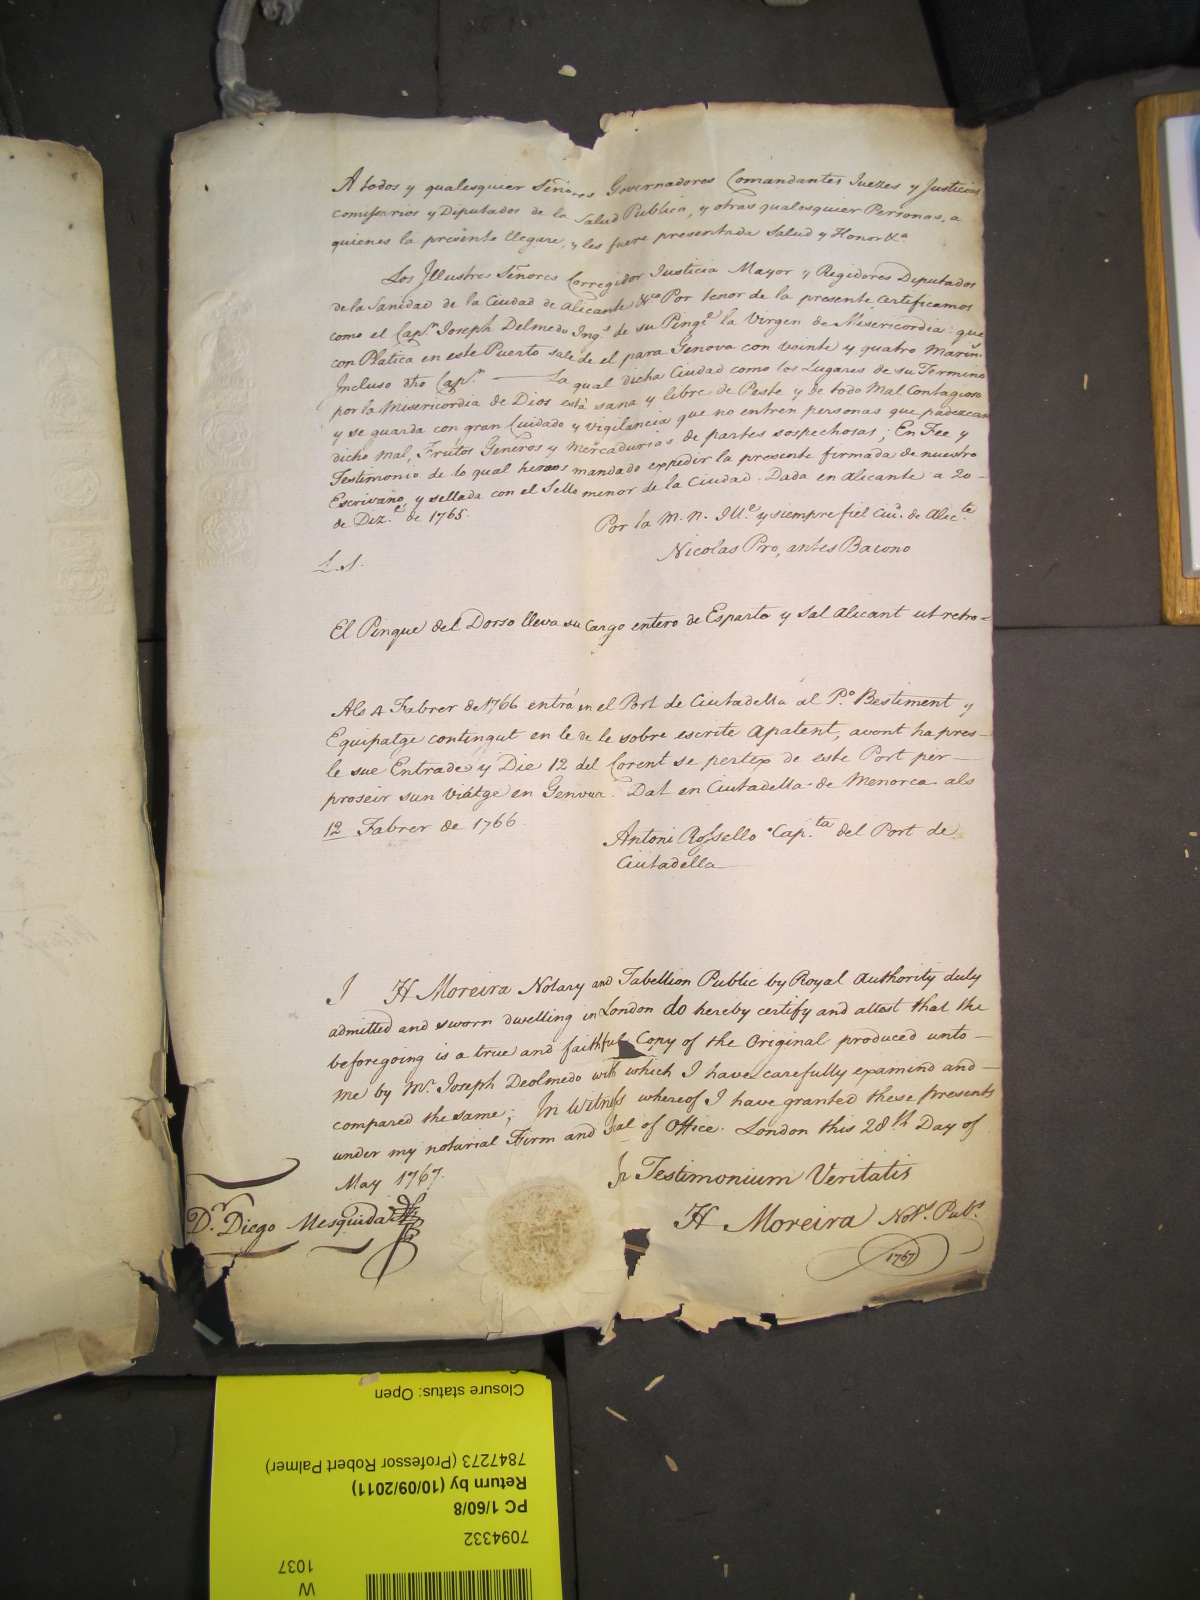 A todos y qualesquier Señores Governadores Comandantes Juezes y Justicias
comissarios y Diputados de la Salud Publica, y otras qualesquier Personas, a
quienes la presente llegare, y les fuere presentada Salud y Honor &a
Los Illustres Señores Corregidor Justicia Mayor y Regidores Diputados
de la Sanidad de la Ciudad de Alicante &ca Por tenor de la presente certificamos
como el Capn Joseph Delmedo Ings de su Pinge la Virgen de Misericordia: que
con Platica en este Puerto sale de el para Genova con veinte y quatro Marin.s
Incluso dho Capn — La qual dicha Ciudad como los Lugares de su Termino
por la Misericordia de Dios está sana y libre de Peste y de todo Mal Contagioso
y se guarda con gran Cuidado y vigilancia que no entren personas que padezcan
dicho Mal, Frutos Generos y Mercadurias de partes sospechosas; En Fee y
Testimonio de lo qual hemos mandado expedir la presente firmada de nuestro
Escrivano, y sellada con el Sello menor de la Ciudad. Dada en Alicante a 20—
de Diz.e de 1765.
Por la M. N. Ill.e y siempre fiel Ciud. de Alic.te
Nicolas Pro, antes Bacono
L.S.
El Pinque del Dorso lleva su Cargo entero de Esparto y Sal Alicant ut retro—
Als 4 Fabrer de 1766 entrá en el Port de Ciutadella al P.o Bestiment y
Equipatge contingut en le de le sobre escrite Apatent, avont ha pres—
le sue Entrade y Die 12 del Corent se pertex de este Port per—
proseir sun Viatge en Genova. Dat en Ciutadella de Menorca als
12 Fabrer de 1766
Antoni Rossello Cap.ta del Port de
Ciutadella—
I H Moreira Notary and Tabellion Public by Royal Authority duly
admitted and sworn dwelling in London do hereby certify and attest that the
beforegoing is a true and faithful Copy of the Original produced unto—
me by Mr Joseph Deolmedo with which I have carefully examind and—
compared the same; In Witness whereof I have granted these presents
under my notarial Firm and Seal of Office. London this 28th Day of
May 1767.
In Testimonium Veritatis
Dn Diego Mesquida
H Moreira Not.y Pub.s
1767
Closure status: Open
7847273 (Professor Robert Palmer)
Return by (10/09/2011)
PC 1/60/8
7094332
1037
W